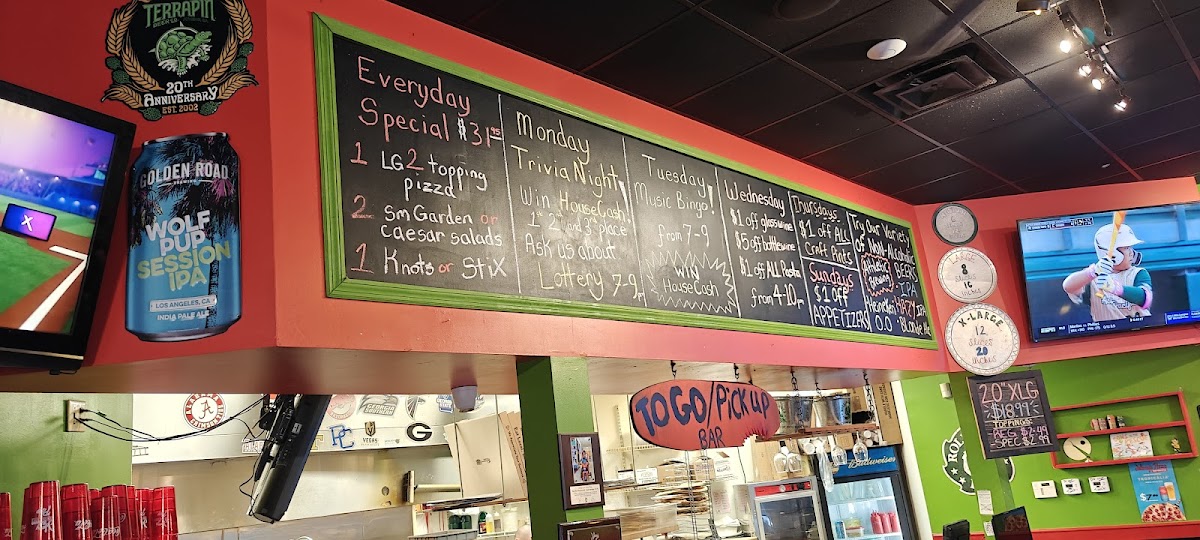 TERRAPIN
BEER CO
20TH
ANNIVERSARY
EST. 2002
GOLDEN ROAD
BREWING
WOLF
PUP
SESSION
IPA
LOS ANGELES, CA
INDIA PALE ALE
X
Everyday
Special $31.95
1 LG 2 topping
pizza
2 sm Garden or
caesar salads
1 Knots or Stix
Monday
Trivia Night!
Win House Cash!
1st 2nd and 3rd place
Ask us about
Lottery 7-9pm
Tuesday
Music Bingo!
from 7-9
Win
House Cash
Wednesday
$1 off glass wine
$5 off bottle wine
$1 off ALL Pasta
from 4-10pm
Thursdays
$1 off ALL
Craft Pints
Sundays
$1 off
APPETIZERS
Try Our Variety
of Non-Alcoholic
BEERS
Athletic
Brewing
IPA
HAZY IPA
Heineken
0.0
LARGE
8
slices
16
inches
X-LARGE
12
slices
20
inches
ESPN
TO GO/PICK UP
BAR
A
G
VEGAS
Budweiser
20" XLG
$18.99
TOPPINGS
SPEC $2.99